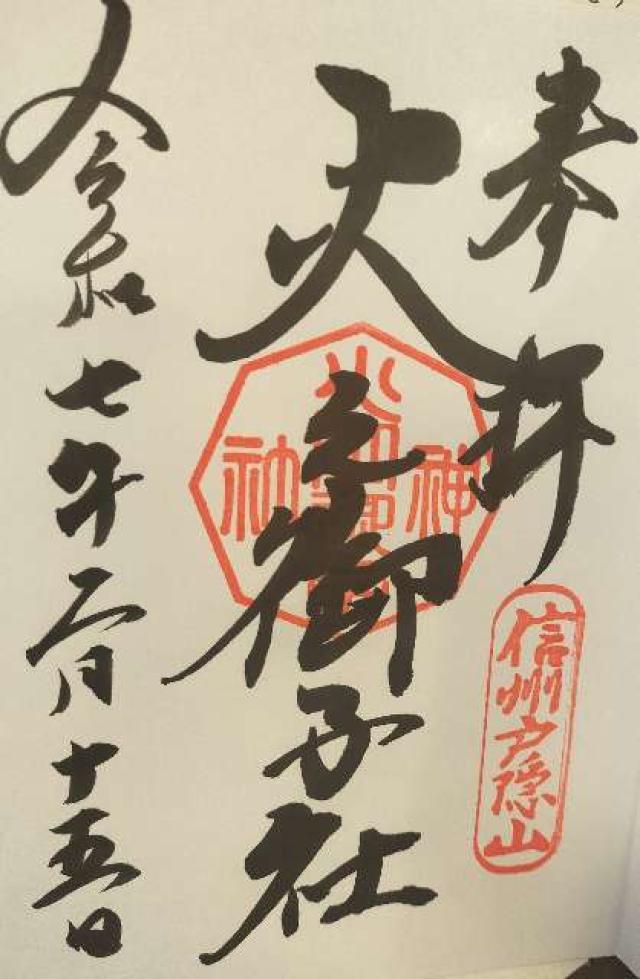 奉拝
信州戸隠山
火之御子社
令和七年二月十五日